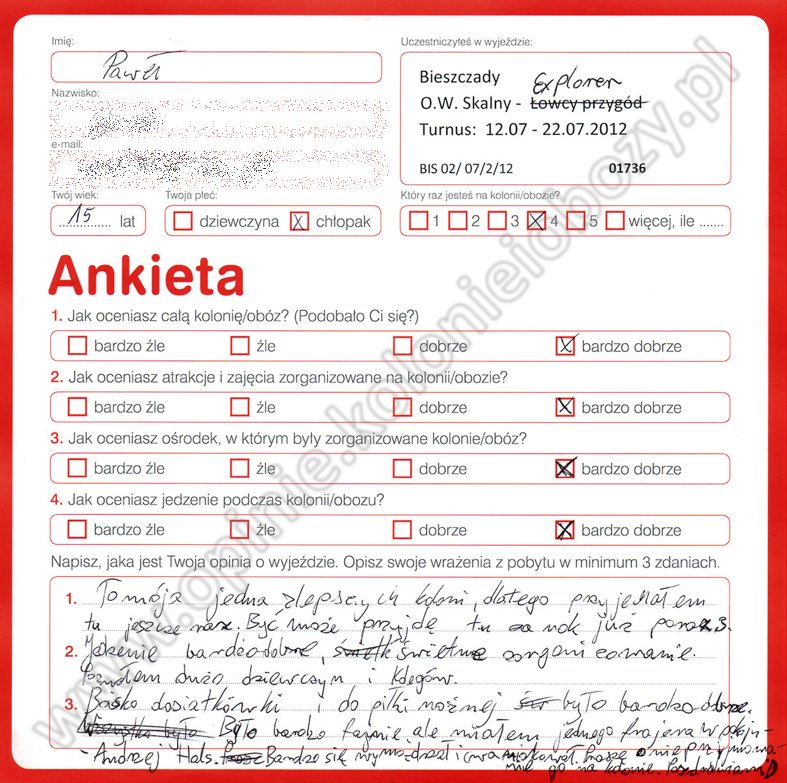 Imię:
Paweł
Nazwisko:
e-mail:
Twój wiek:
15 lat
Twoja płeć:
dziewczyna chłopak
Uczestniczyłeś w wyjeździe:
Bieszczady Explorer
O.W. Skalny - Łowcy przygód
Turnus: 12.07 - 22.07.2012
BIS 02/ 07/2/12 01736
Który raz jesteś na kolonii/obozie?
1 2 3 4 5 więcej, ile .......
Ankieta
1. Jak oceniasz całą kolonię/obóz? (Podobało Ci się?)
bardzo źle źle dobrze bardzo dobrze
2. Jak oceniasz atrakcje i zajęcia zorganizowane na kolonii/obozie?
bardzo źle źle dobrze bardzo dobrze
3. Jak oceniasz ośrodek, w którym były zorganizowane kolonie/obóz?
bardzo źle źle dobrze bardzo dobrze
4. Jak oceniasz jedzenie podczas kolonii/obozu?
bardzo źle źle dobrze bardzo dobrze
Napisz, jaka jest Twoja opinia o wyjeździe. Opisz swoje wrażenia z pobytu w minimum 3 zdaniach.
1. To mója jedna zlepszych koloni, dlatego przyjechałem
tu jeszcze raz. Być może przyjdę tu za rok już poraz 3.
2. Jedzenie bardzo dobre, świetne zorganizowanie.
Poznałem dużo dziewczyn i kolegów.
3. Boisko do siatkówki i do piłki nożnej było bardzo dobre.
Było bardzo fajnie ale miałem jednego frajera w pokoju
- Andrzej Hals. Bardzo się wymądrzał i proszę o nie przyjmowa-
nie go na kolonie. Pozdrawiam :D
www.opinie.kolonieiobozy.pl